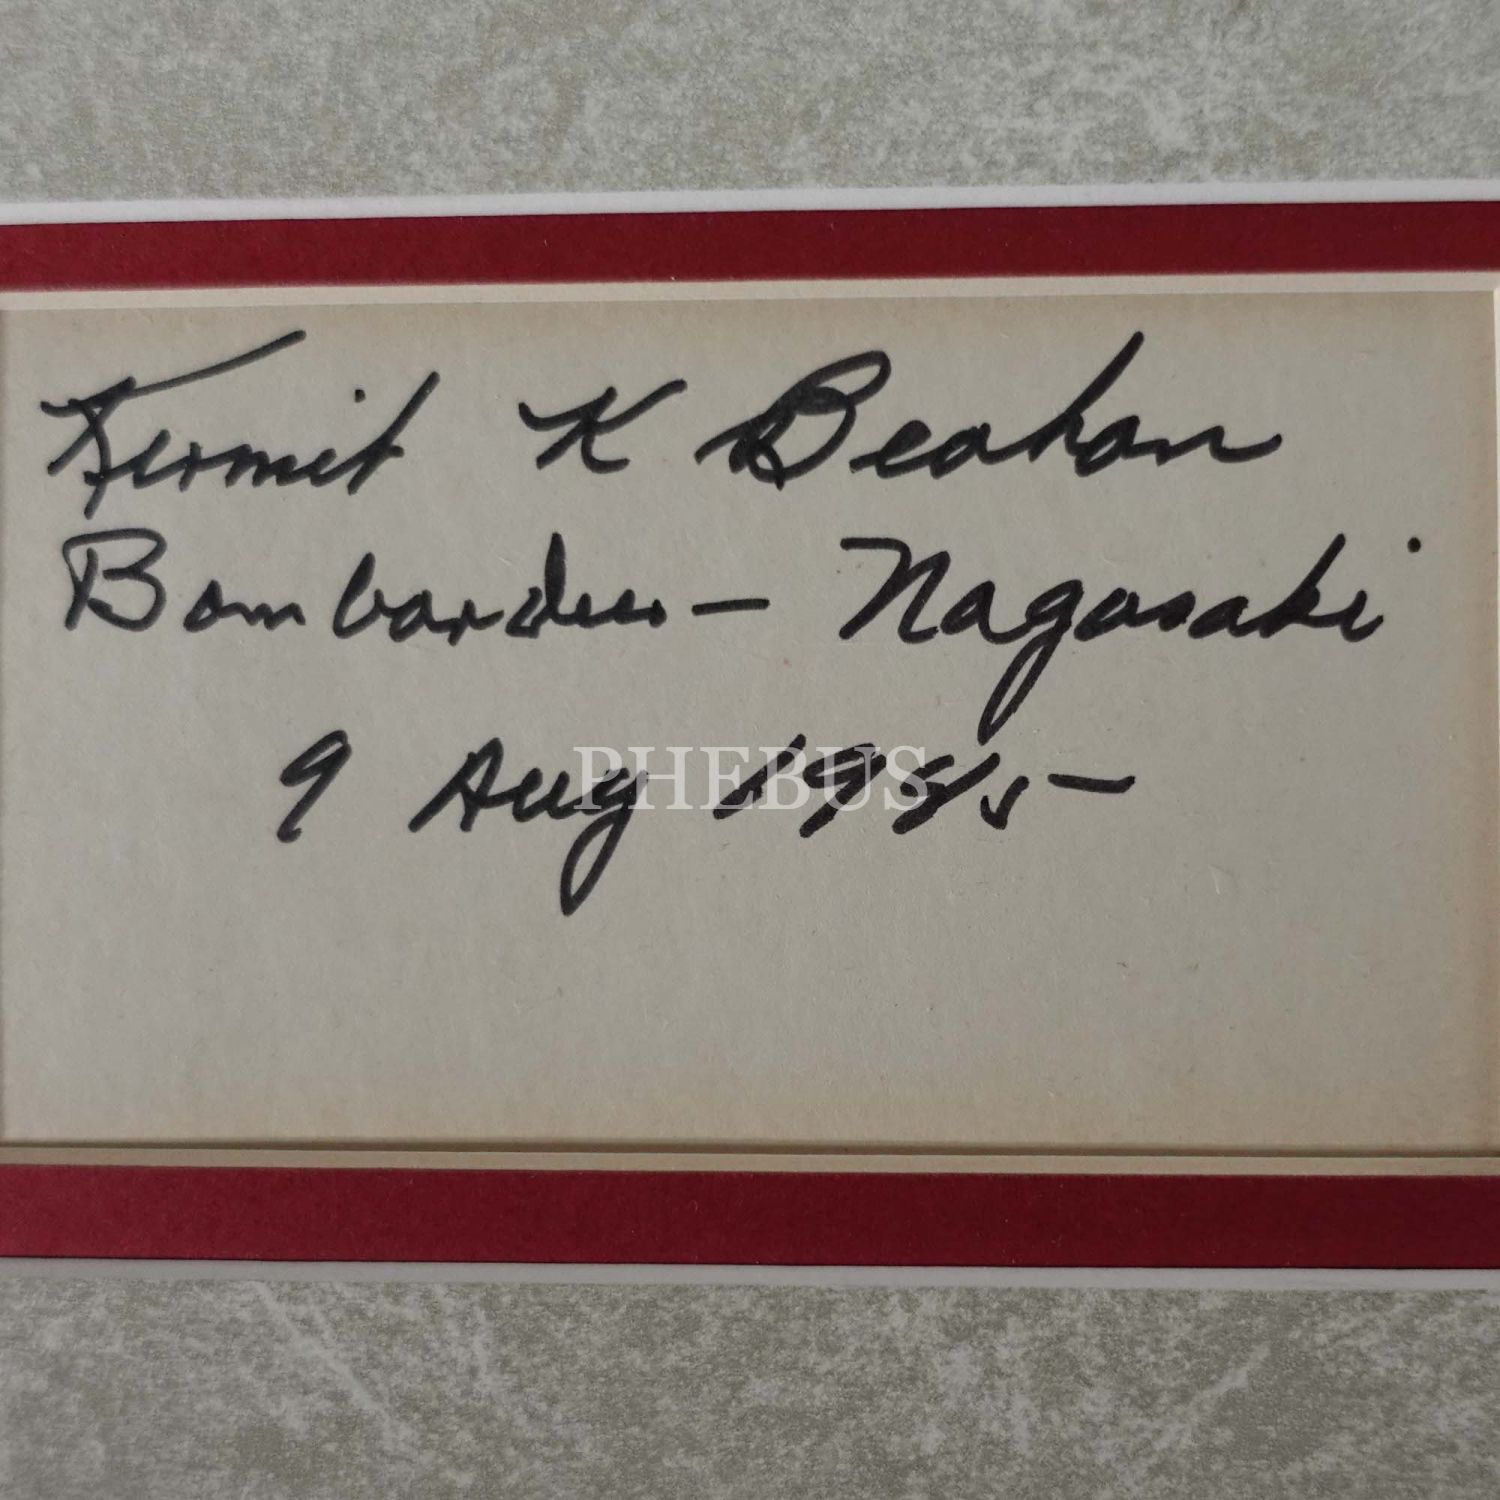 Kermit K Beahan
Bombardier – Nagasaki
9 Aug 1945 –
PHEBUS